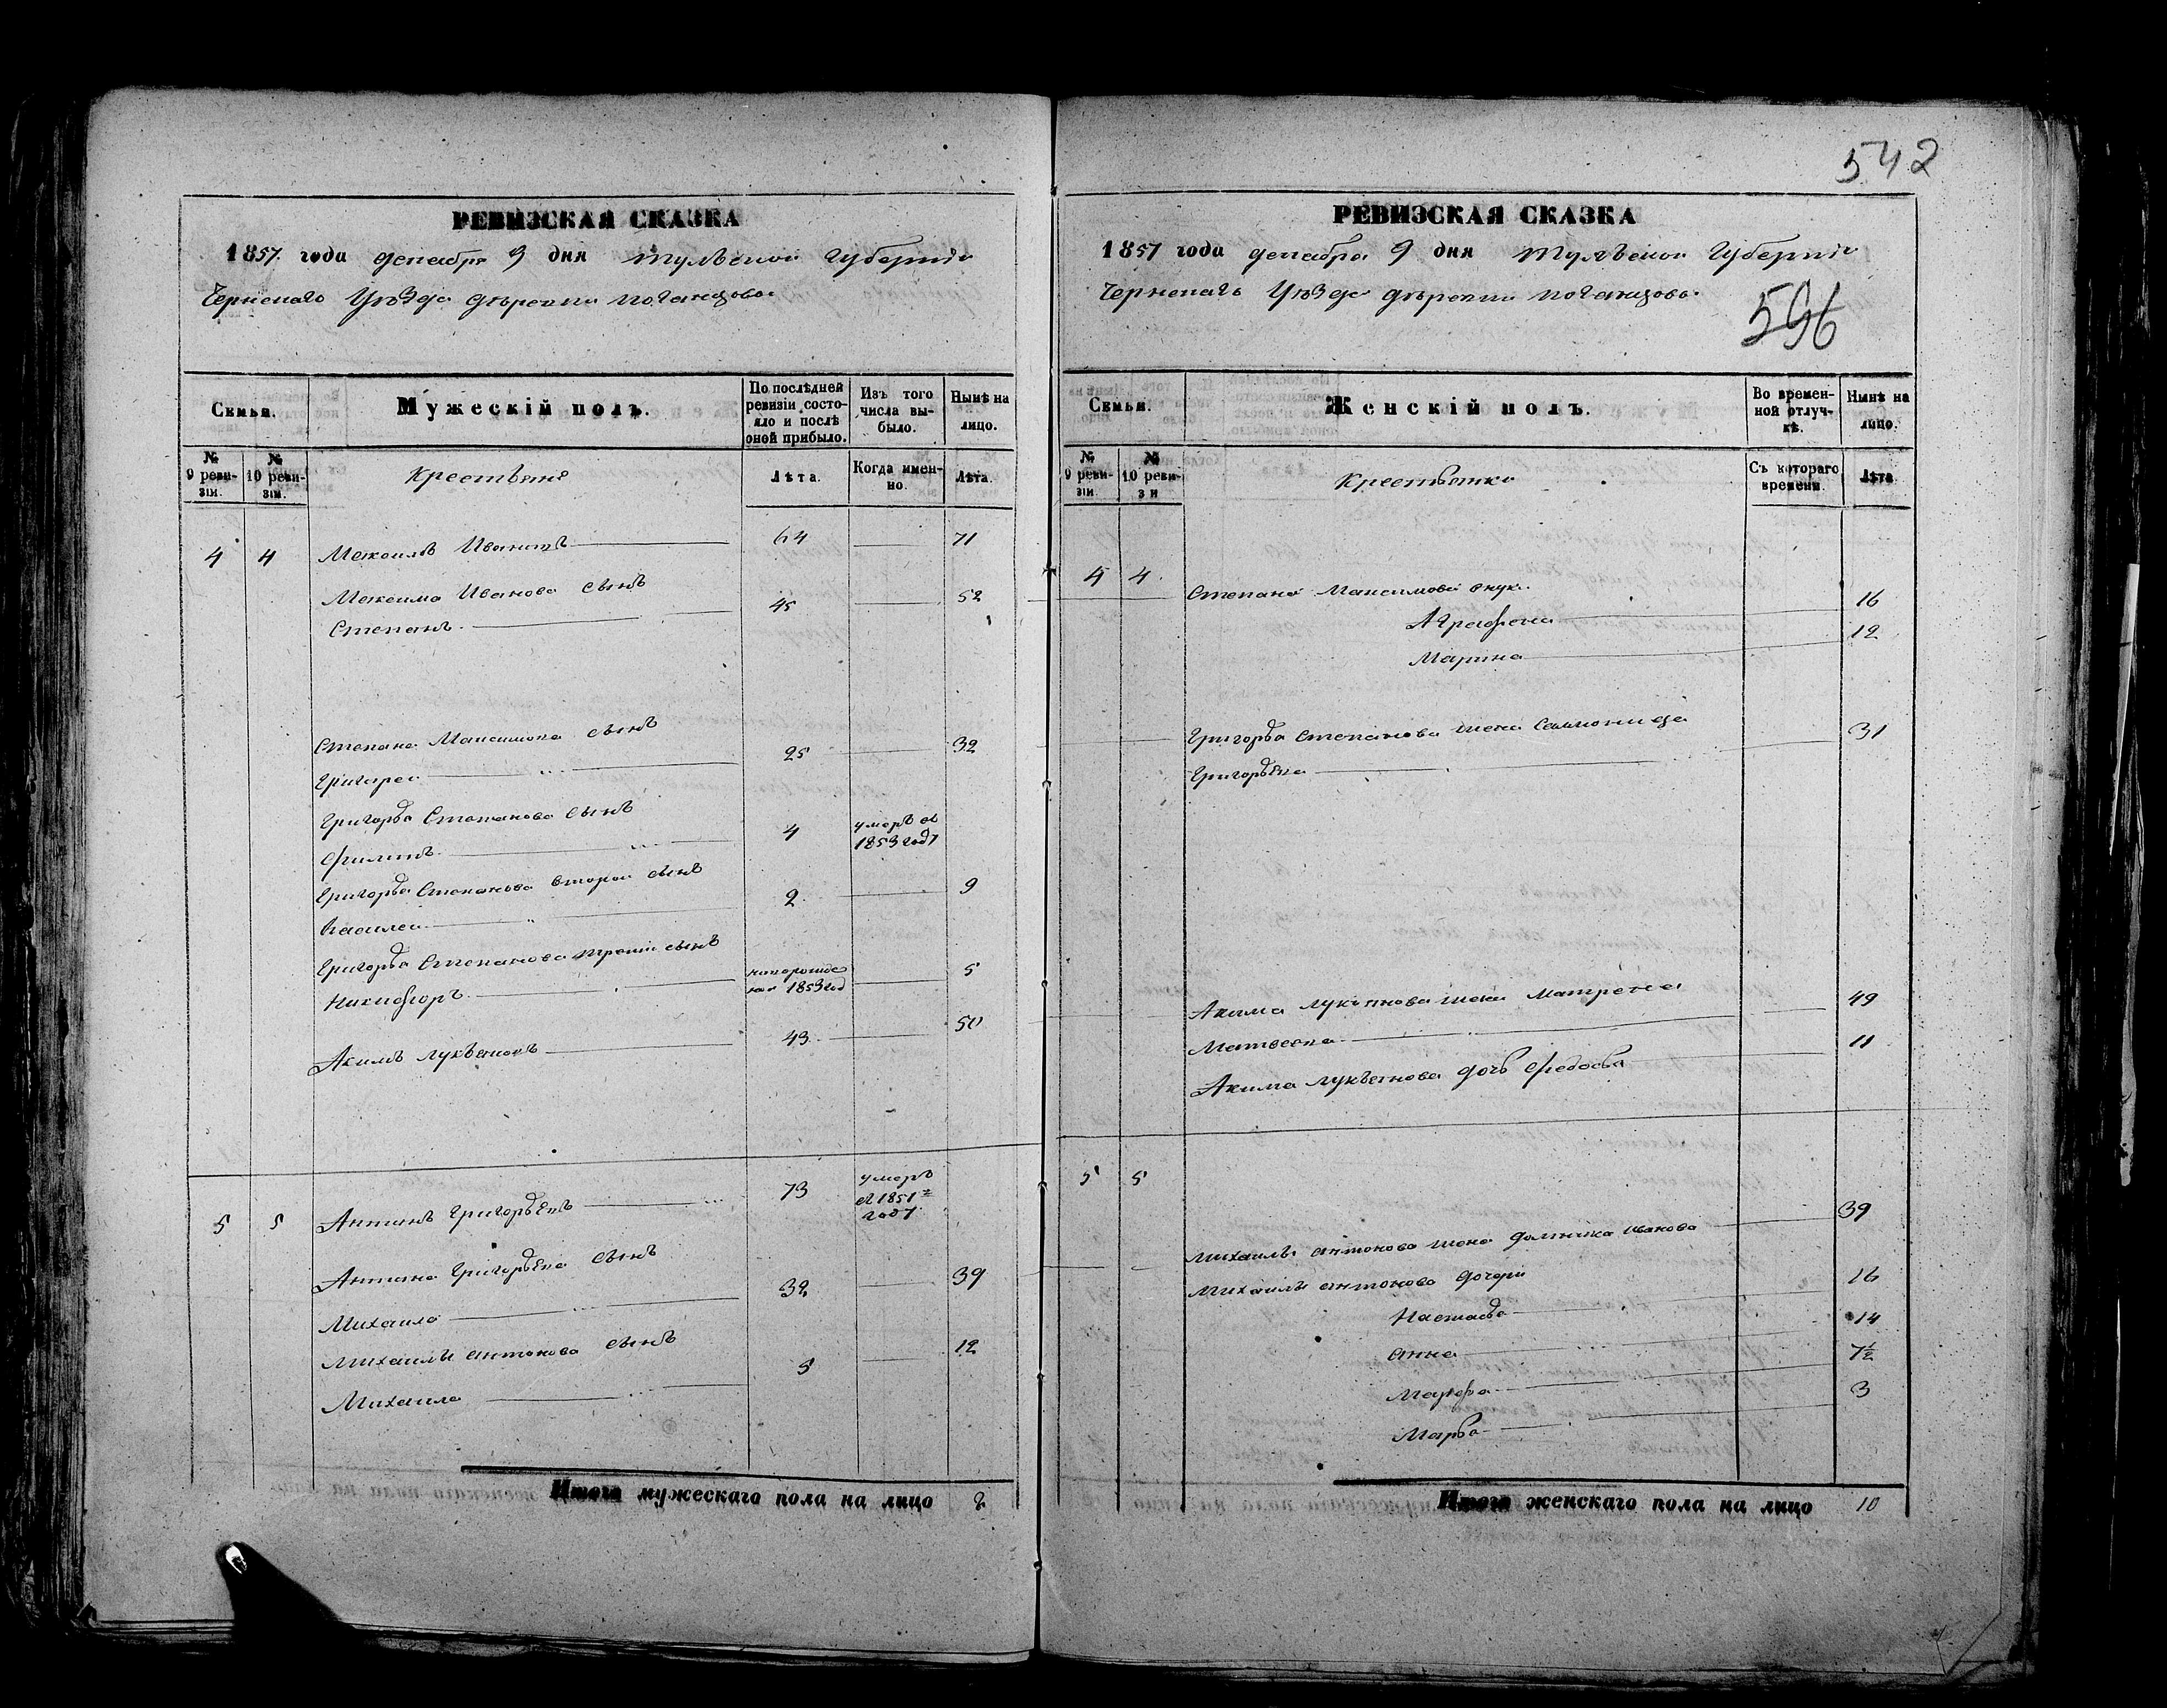 РЕВИЗСКАЯ СКАЗКА
1857 года декабря 9 дня Тульской Губерніи
Чернскаго Уѣзда деревни
Семьи.
Мужескій полъ.
По послѣдней ревизіи состояло и послѣ оной прибыло.
Изъ того числа выбыло.
Нынѣ на лицо.
№ 9 ревизіи.
№ 10 ревизіи.
Крестьяне
Лѣта.
Когда именно.
Лѣта.
4 4 Иванов 64 71
Иванова сынъ
Степанъ 45 52
Степана Максимова сынъ
Григорей 25 32
Григорья Степанова сынъ
Филипъ 4 умеръ въ 1853 году
Григорья Степанова второй сынъ
Василей 2 9
Григорья Степанова третій сынъ
Никифоръ 1853 5
Акимъ Лукьяновъ 43 50
5 5 Антонъ Григорьевъ 73 умеръ въ 1851 году
Антона Григорьева сынъ
Михаило 32 39
Михаилы Антонова сынъ
Михаила 5 12
Итого мужескаго пола на лицо
542
РЕВИЗСКАЯ СКАЗКА
1857 года декабря 9 дня Тульской Губерніи
Чернскаго Уѣзда деревни
596
Семьи.
Женскій полъ.
Во временной отлучкѣ.
Нынѣ на лицо.
№ 9 ревизіи
№ 10 ревизіи
Крестьянки
Съ котораго времени.
Лѣта
4 4 Степана Максимова
Аграфена 16
Марина 12
Григорья Степанова жена Соломонида 31
Григорьева
Акима Лукьянова жена Матрена 49
Матвеева
Акима Лукьянова дочь Федосья 11
5 5
Михаилы Антонова жена Домника Иванова 39
Михаилы Антонова дочери
Настасья 16
Анна 14
Марфа 7½
Марья 3
Итого женскаго пола на лицо 10